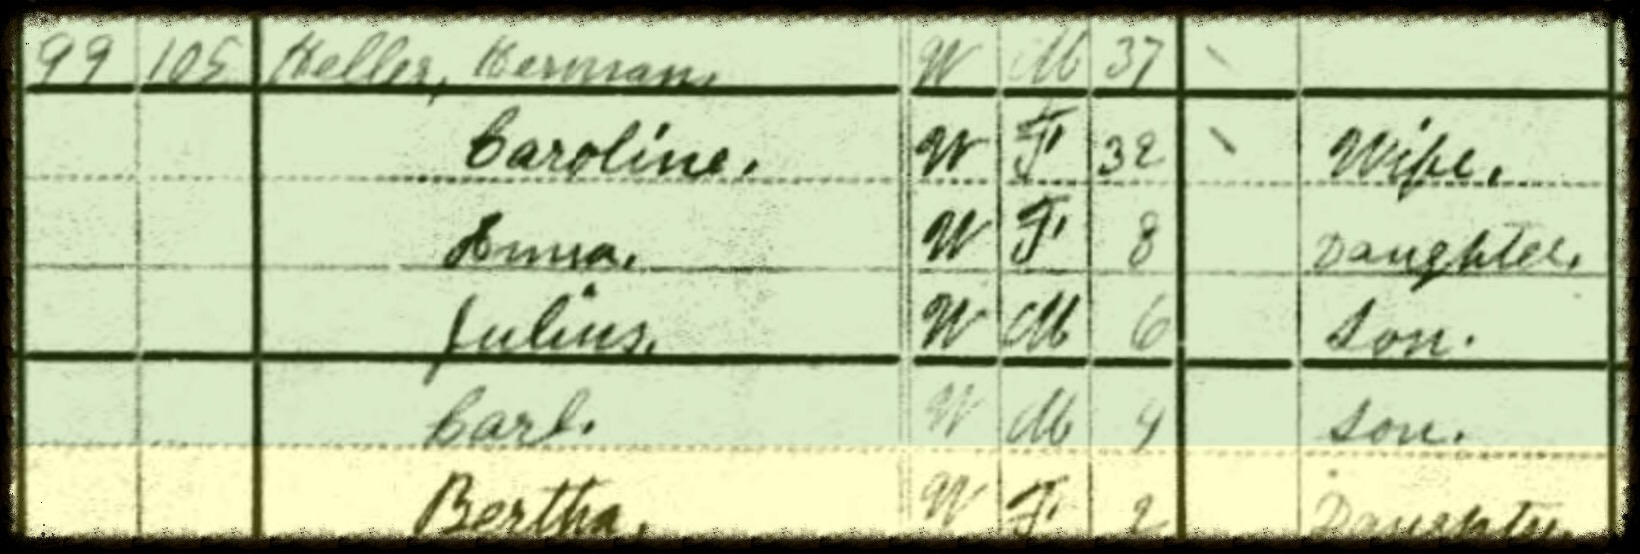 99 105 Heller, Herman. W M 37 \
Caroline. W F 32 \ Wife.
Anna. W F 8 Daughter.
Julius. W M 6 Son.
Carl. W M 4 Son.
Bertha. W F 2 Daughter.